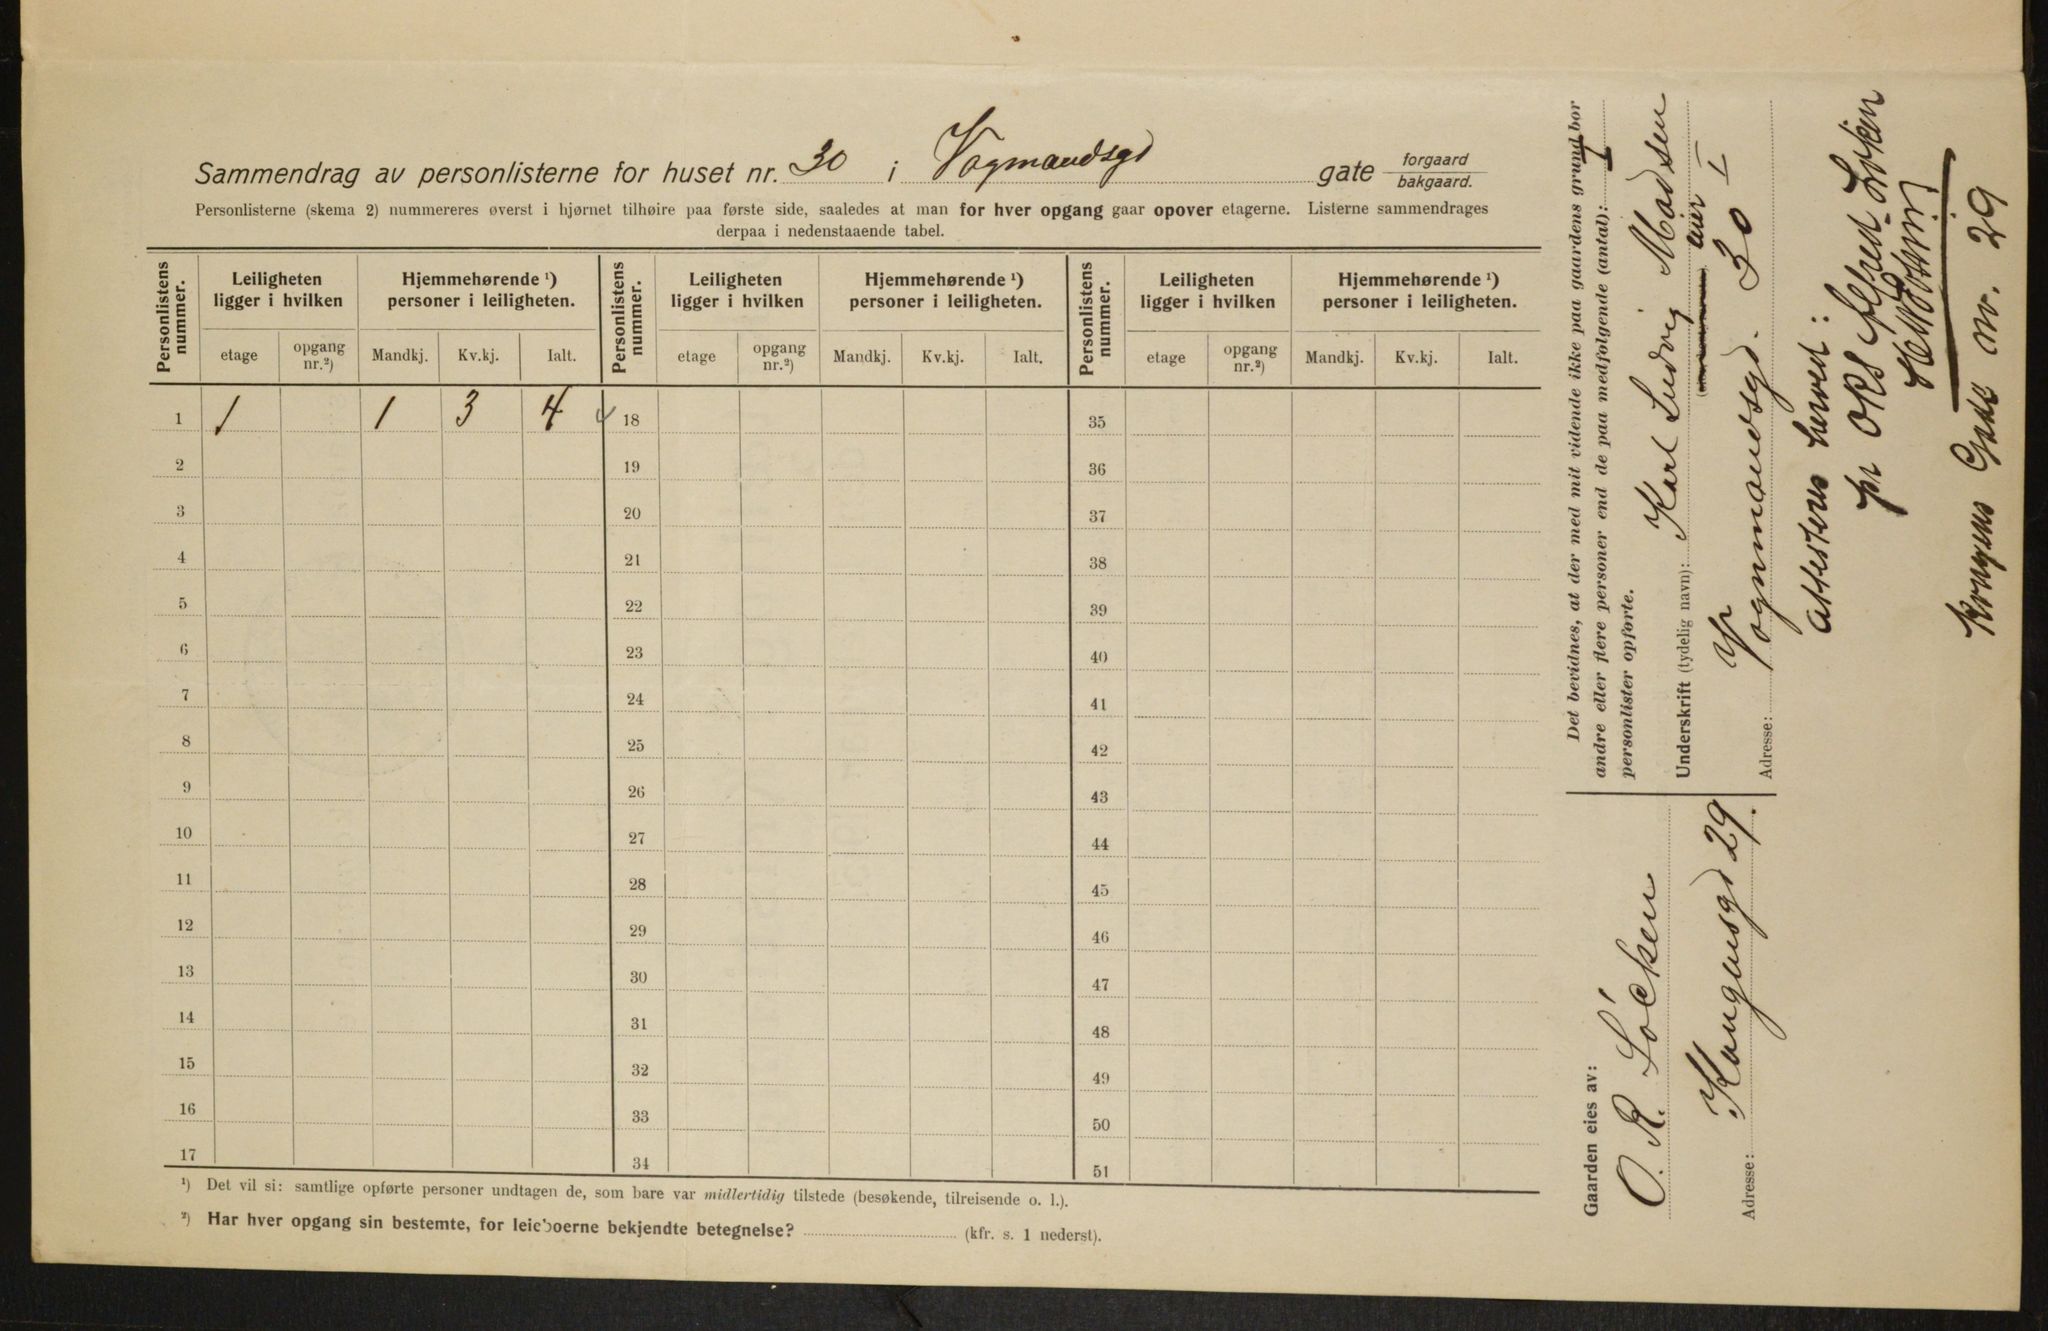 Sammendrag av personlisterne for huset nr. 30 i Vognmandsgd gate forgaard
bakgaard.
Personlisterne (skema 2) nummereres øverst i hjørnet tilhøire paa første side, saaledes at man for hver opgang gaar opover etagerne. Listerne sammendrages
derpaa i nedenstaaende tabel.
Personlistens nummer. Leiligheten ligger i hvilken Hjemmehørende ¹) personer i leiligheten. Personlistens nummer. Leiligheten ligger i hvilken Hjemmehørende ¹) personer i leiligheten. Personlistens nummer. Leiligheten ligger i hvilken Hjemmehørende ¹) personer i leiligheten.
etage opgang nr.²) Mandkj. Kv.kj. Ialt. etage opgang nr.²) Mandkj. Kv.kj. Ialt. etage opgang nr.²) Mandkj. Kv.kj. Ialt.
1 1 1 3 4 4 18 35
2 19 36
3 20 37
4 21 38
5 22 39
6 23 40
7 24 41
8 25 42
9 26 43
10 27 44
11 28 45
12 29 46
13 30 47
14 31 48
15 32 49
16 33 50
17 34 51
¹) Det vil si: samtlige opførte personer undtagen de, som bare var midlertidig tilstede (besøkende, tilreisende o. l.).
²) Har hver opgang sin bestemte, for leieboerne bekjendte betegnelse? (kfr. s. 1 nederst).
Det bevidnes, at der med mit vidende ikke paa gaardens grund bor
andre eller flere personer end de paa medfølgende (antal): 1
personlister opførte.
Underskrift (tydelig navn): Karl Ludvig Madsen
eier
Adresse: Vognmandsgd. 30 I
Gaarden eies av:
O. R. Løcken
Adresse: Kongensgd 29.
Attesteres herved:
pr ORS
Kongens Gade nr. 29